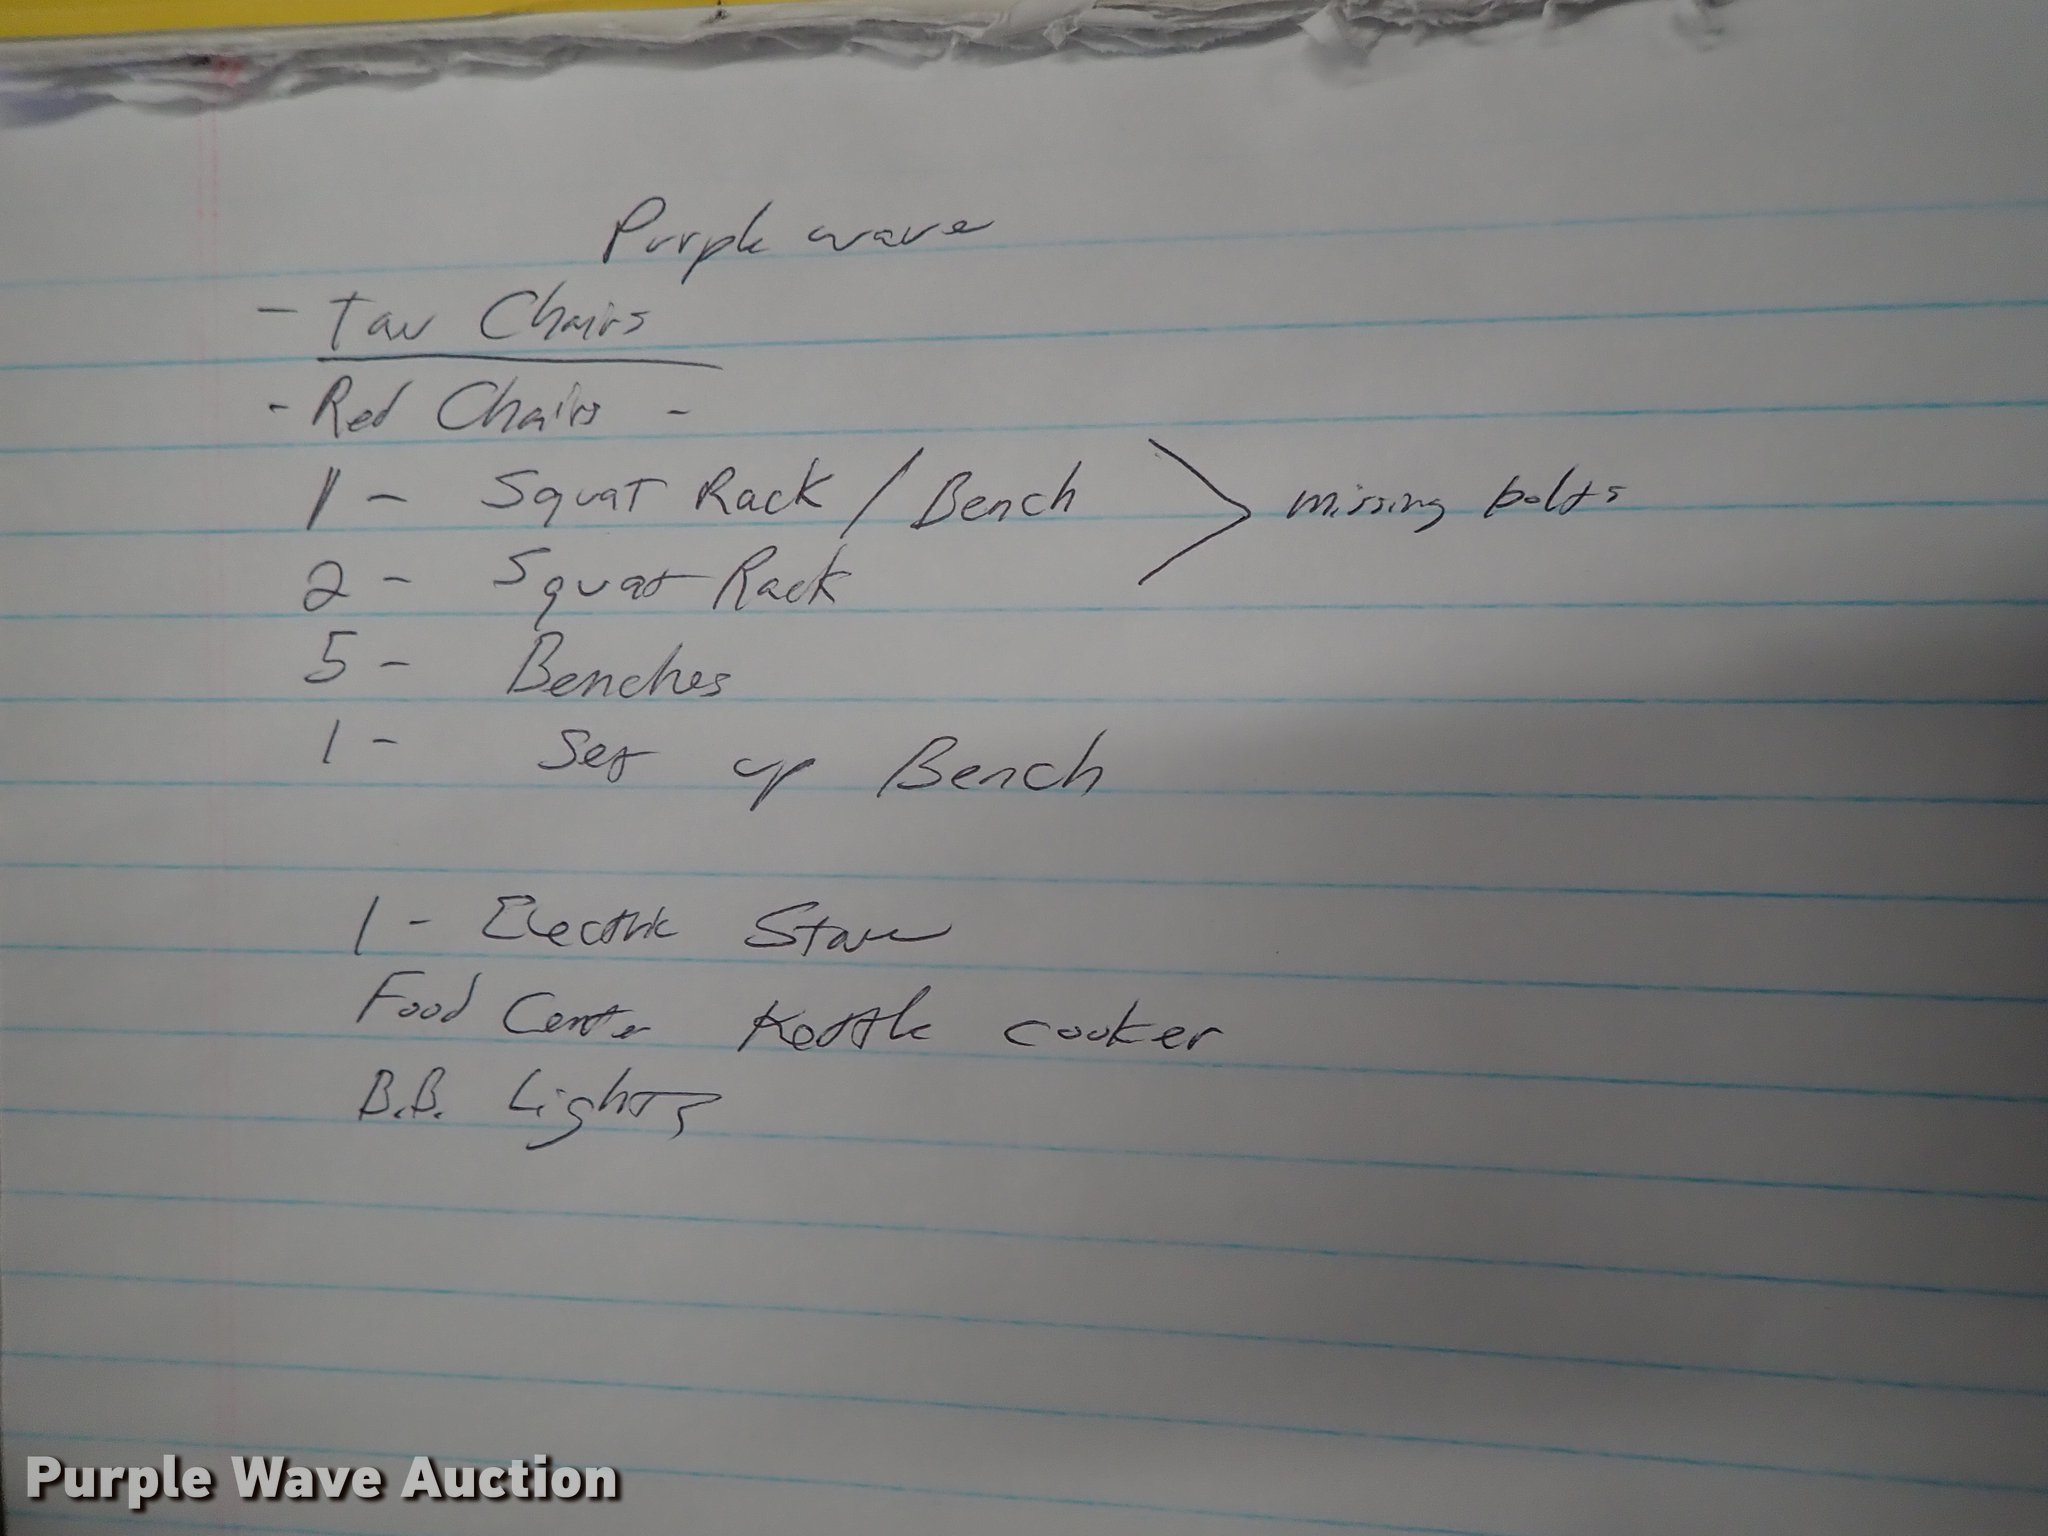 Purple wave
- Tan Chairs
- Red Chairs -
1 - Squat Rack / Bench > missing bolts
2 - Squat Rack
5 - Benches
1 - Set up Bench
1 - Electric Stove
Food Center Kettle cooker
B.B. Lights
Purple Wave Auction